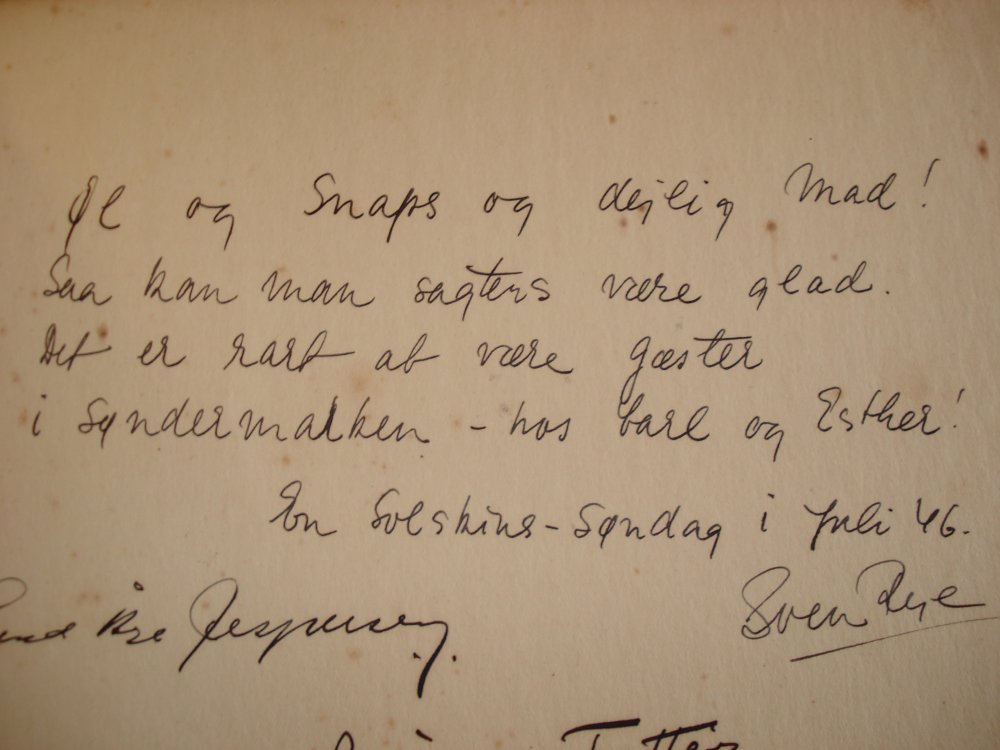 Øl og Snaps og dejlig Mad!
Saa kan man sagtens være glad.
Det er rart at være Gæster
i Søndermarken - hos Carl og Esther!
En Solskins-Søndag i Juli 46.
Sven Rye
Jespersen.